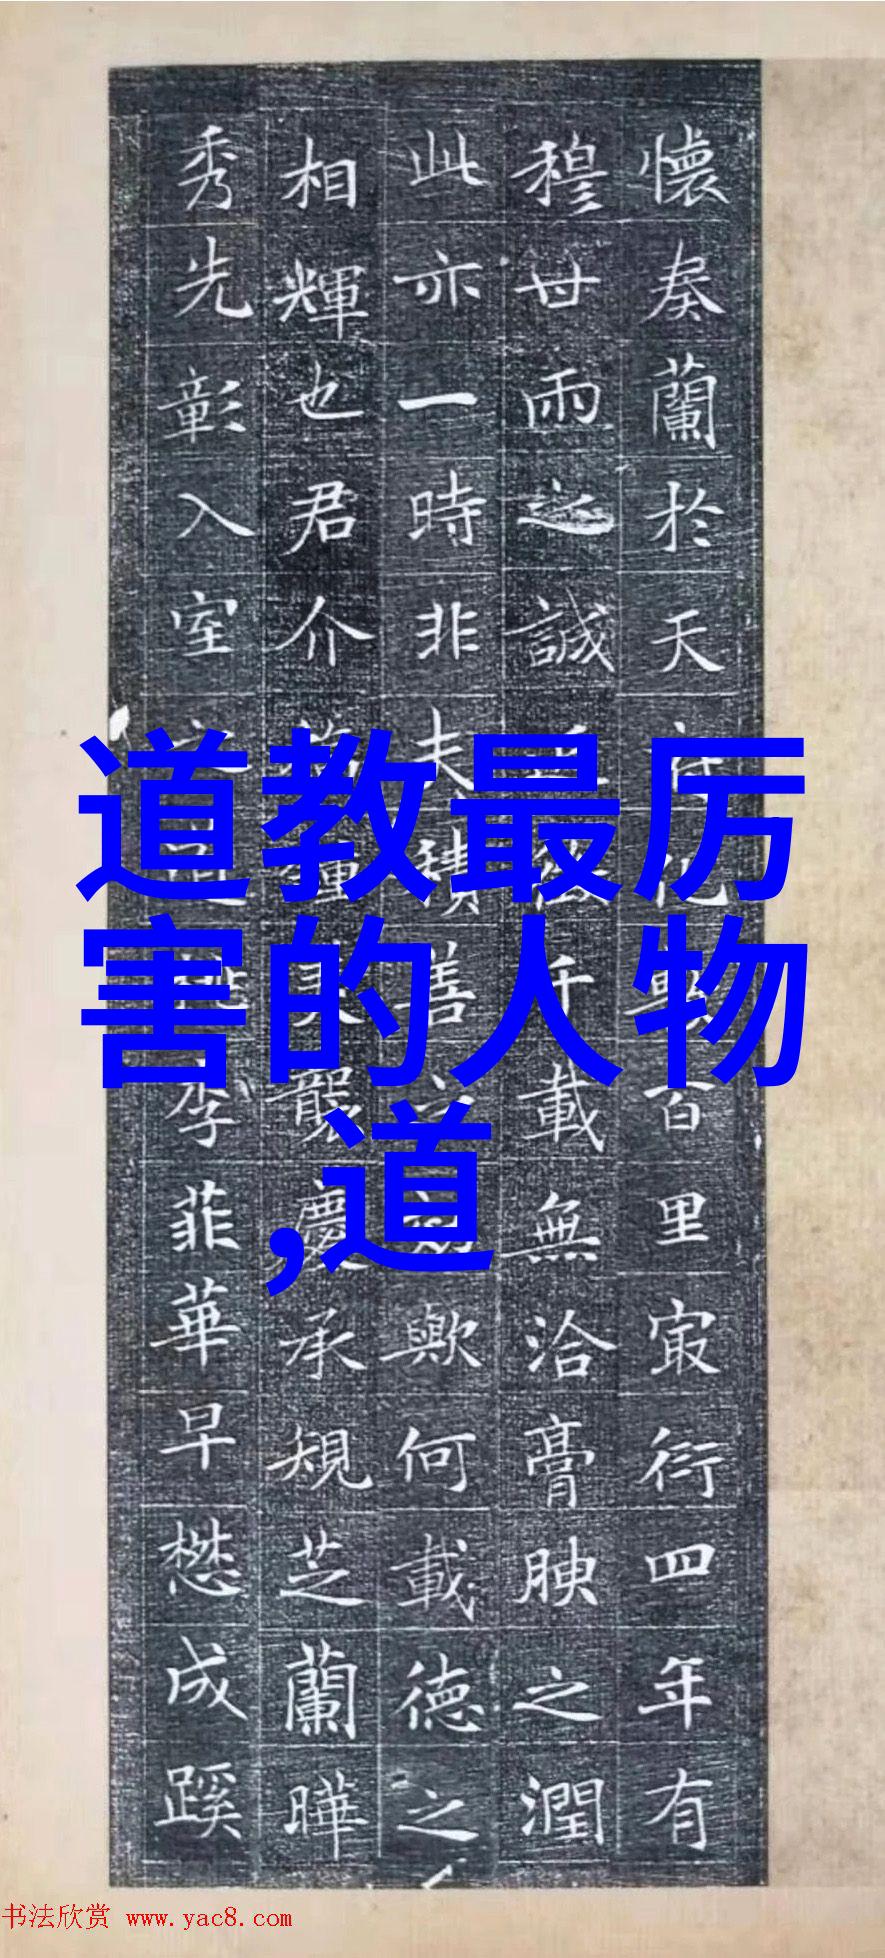 懷奏蘭於天化百里㝡衍四年有
穆甘雨之誠千載無洽膏腴之潤
此亦一時非夫積善歟何載德之
相輝也君介襲慶承規芝蘭曄
秀先彰入室李菲華早懋成蹊
道教最厉
害的人物
,道
书法欣赏 www.yac8.com